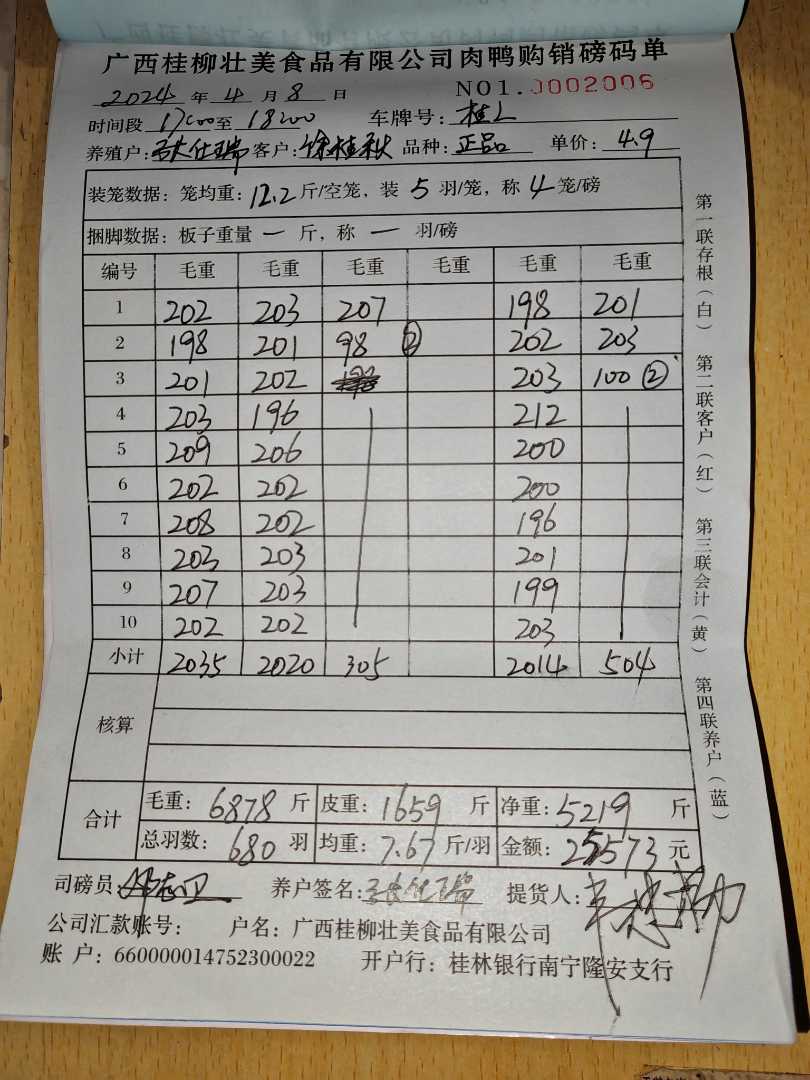 广西桂柳壮美食品有限公司肉鸭购销磅码单
2024 年 4 月 8 日 NO1.0002006
时间段 17:00 至 18:00 车牌号: 桂L
养殖户: 仕瑞 客户: 徐桂秋 品种: 正品 单价: 4.9
装笼数据: 笼均重: 12.2 斤/空笼, 装 5 羽/笼, 称 4 笼/磅
捆脚数据: 板子重量 一 斤, 称 一 羽/磅
编号 毛重 毛重 毛重 毛重 毛重 毛重
1 202 203 207 198 201
2 198 201 98 ② 202 203
3 201 202 203 100 ②
4 203 196 212
5 209 206 200
6 202 202 200
7 208 202 196
8 203 203 201
9 207 203 199
10 202 202 203
小计 2035 2020 305 2014 504
核算
合计 毛重: 6878 斤 皮重: 1659 斤 净重: 5219 斤
总羽数: 680 羽 均重: 7.67 斤/羽 金额: 25573 元
司磅员: 养户签名: 仕瑞 提货人:
公司汇款账号: 户名: 广西桂柳壮美食品有限公司
账 户: 660000014752300022 开户行: 桂林银行南宁隆安支行
第一联存根(白) 第二联客户(红) 第三联会计(黄) 第四联养户(蓝)